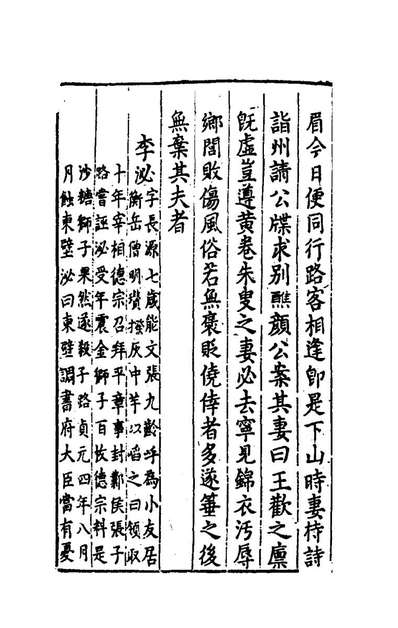 眉今日便同行路客相逢即是下山時妻持詩
詣州請公牒求别醮顔公案其妻曰王歡之廪
既虛豈遵黄卷朱叟之妻必去寧見錦衣汚辱
鄉閭敗傷風俗若無褒貶僥倖者多遂箠之後
無棄其夫者
李泌字長源七歲能文張九齡呼為小友居
衡岳僧明瓚撥灰中芋以啗之曰領取
十年宰相德宗召拜平章事封鄴侯張子
路嘗誣泌受年震金獅子百枚德宗料是
沙糖獅子果然遂殺子路貞元四年八月
月蝕東壁泌曰東壁調書府大臣當有憂